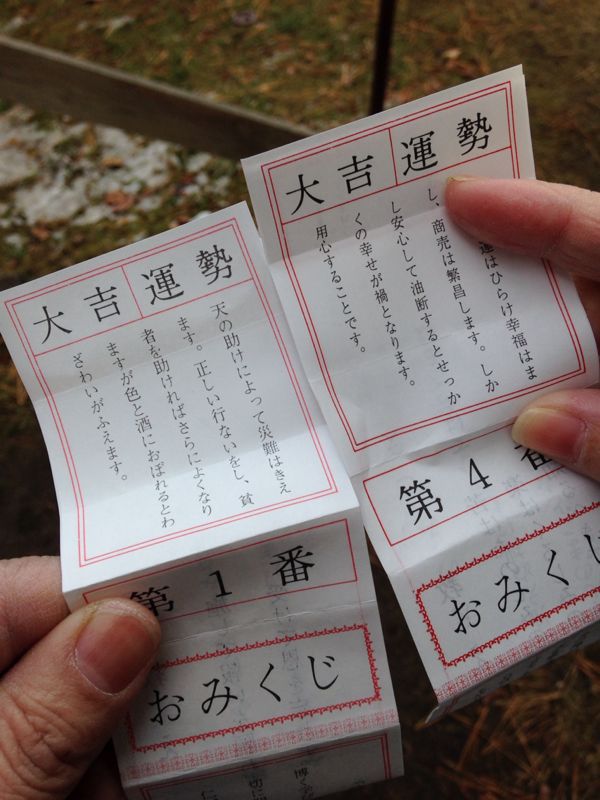 大吉 運勢
天の助けによって災難はきえ
ます。正しい行ないをし、貧
者を助ければさらによくなり
ますが色と酒におぼれるとわ
ざわいがふえます。
第1番
おみくじ
大吉 運勢
運はひらけ幸福はま
し、商売は繁昌します。しか
し安心して油断するとせっか
くの幸せが禍となります。
用心することです。
第4番
おみくじ